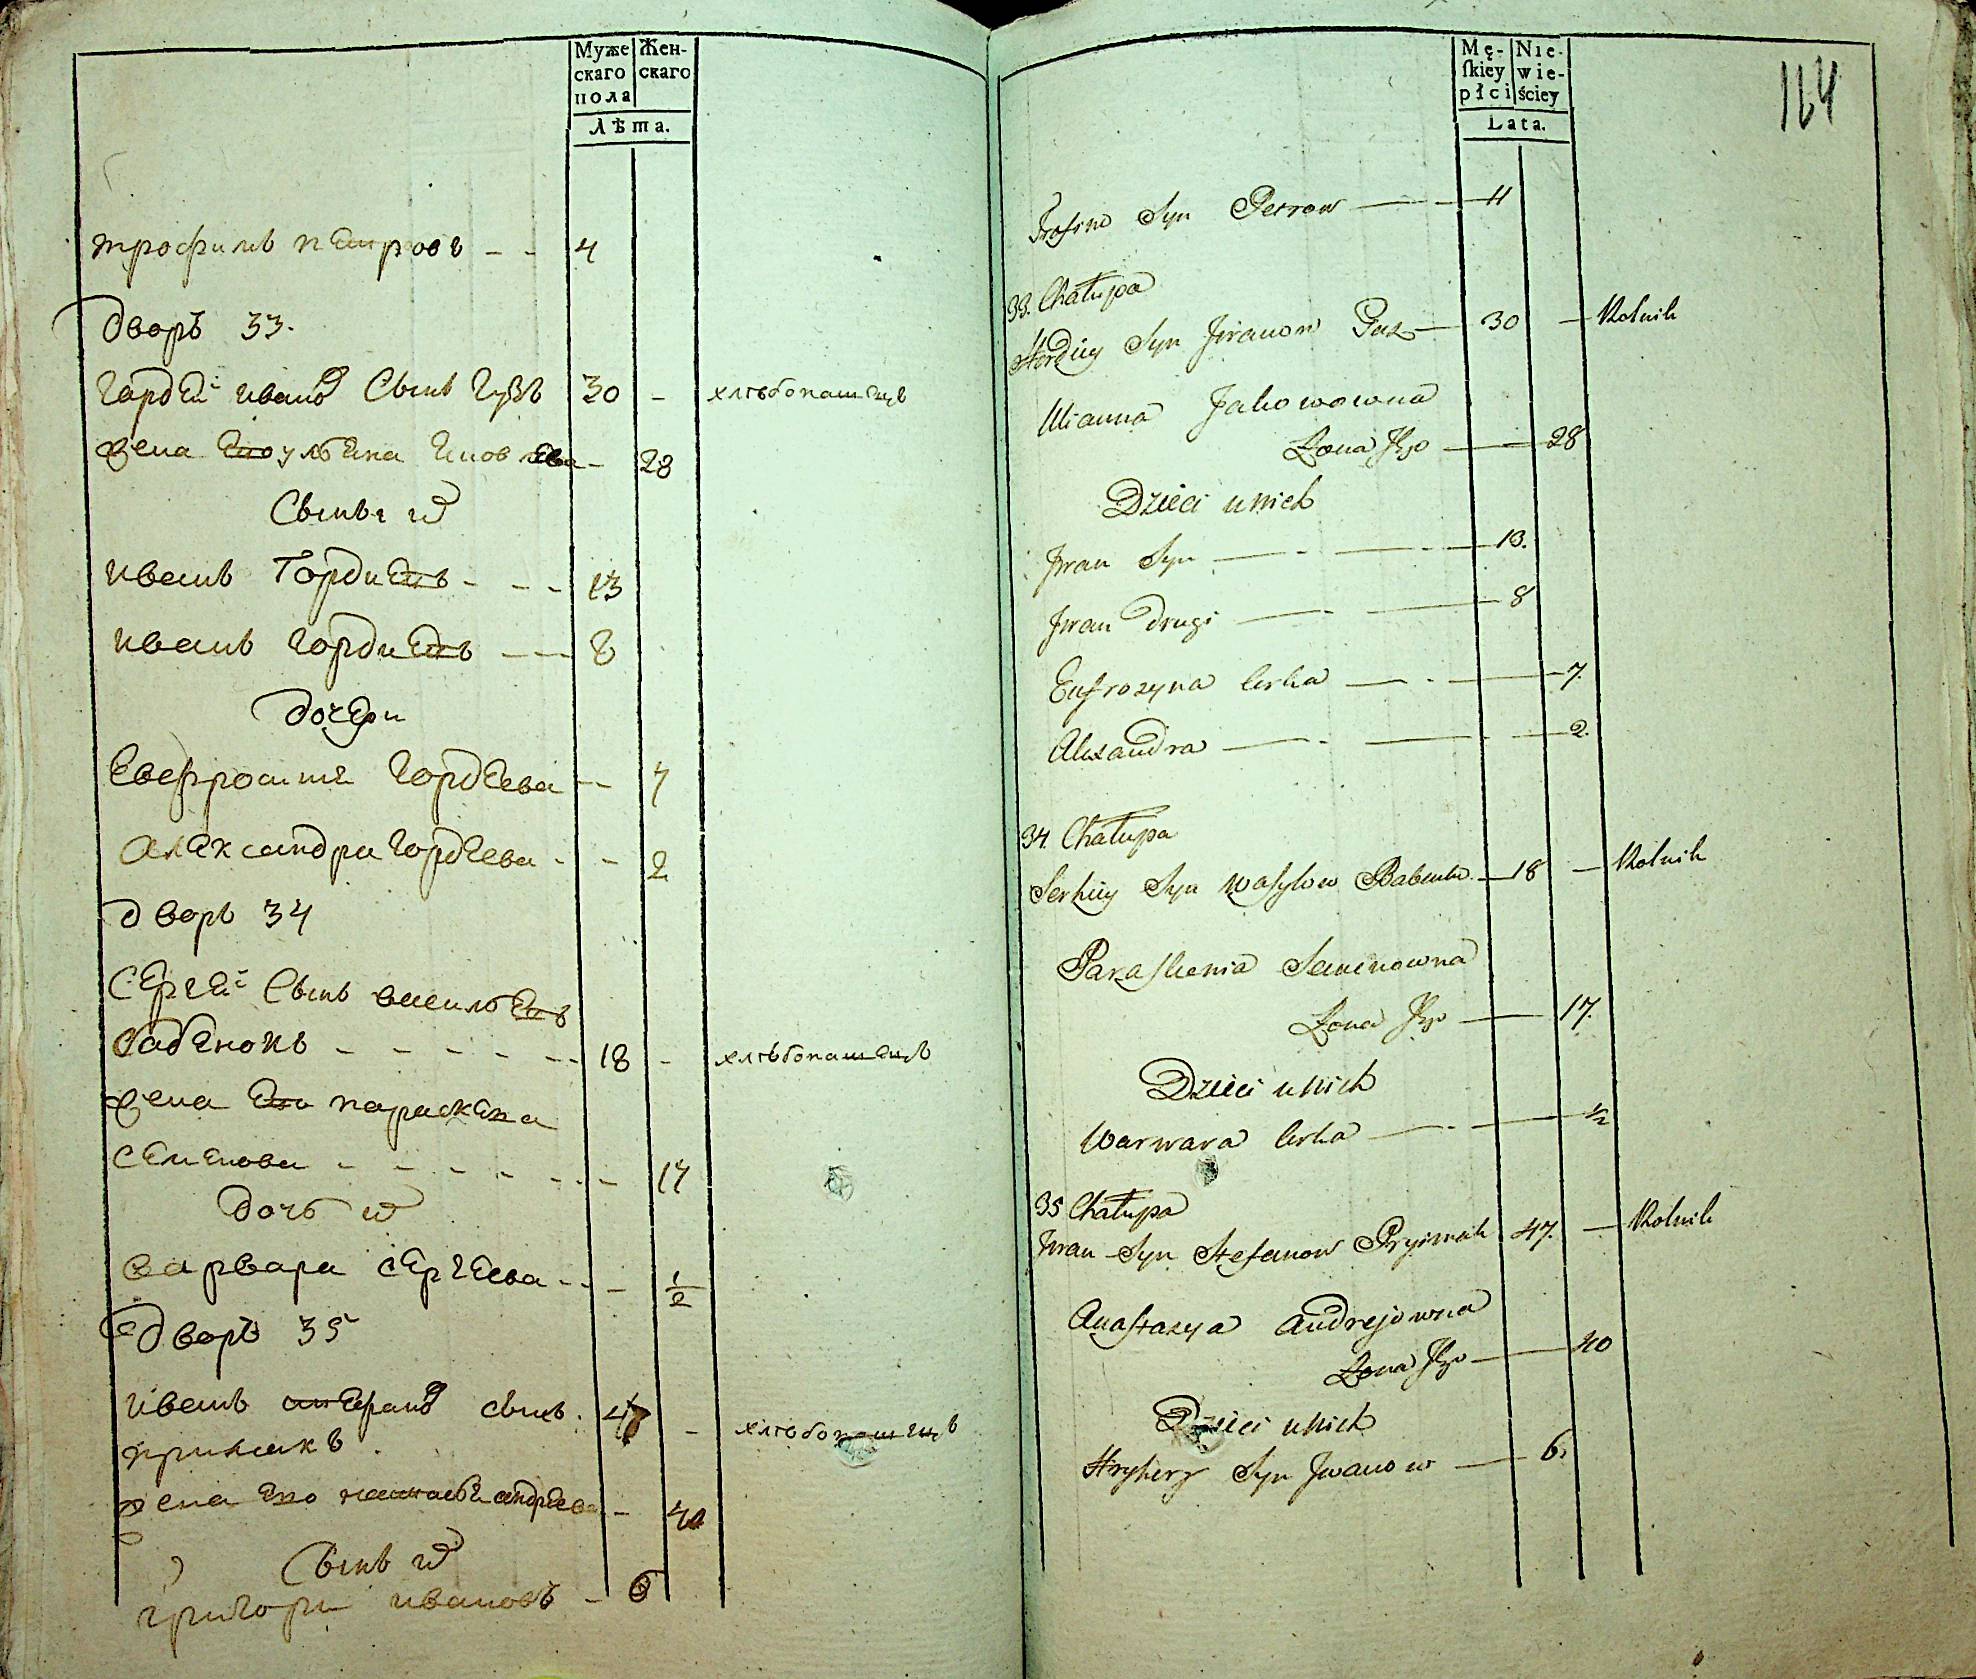 Муже Жен-
скаго скаго
пола
Лѣта.
трофимъ петровъ - - 4
дворъ 33.
гордей ивановъ Сынъ Гузъ 30 - хлѣбопашецъ
жена его ульяна - 28
Сыны их
иванъ Гордиевъ - - - 13
иванъ гордиевъ - - - 8
дочери
Евфросинія гордеева - - 7
александра гордеева - - 2
дворъ 34
Сергей Сынъ васильевъ
бабенокъ - - - - - - 18 - хлѣбопашецъ
жена его параскева
семенова - - - - - - 17
дочь их
варвара сергеева - - - 1/2
дворъ 35
иванъ стефановъ сынъ 47 - хлѣбопашецъ
приймакъ
жена его настасья андреева - 40
Сынъ их
григори ивановъ - 6
Mę- Nie-
ſkiey wie-
płci ściey
Lata.
114
Trofim Syn Petrow 4
33. Chałupa
Hordiey Syn Jwanow Guz 30 — Rolnik
Ulianna Jakowowna
Żona Jego 28
Dzieci u nich
Jwan Syn 13.
Jwan drugi 8
Eufrozyna Corka 7.
Alexandra 2.
34. Chałupa
Serhiey Syn Wasylow Babenko 18 — Rolnik
Paraskewia Semenowna
Żona Jego 17.
Dzieci u nich
Warwara Corka 1/2
35 Chałupa
Jwan Syn Stefanow Pryimak 47. — Rolnik
Anastazya Andrejowna
Żona Jego 40
Dzieci u nich
Hryhery Syn Jwanow 6.